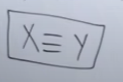 X ≡ Y